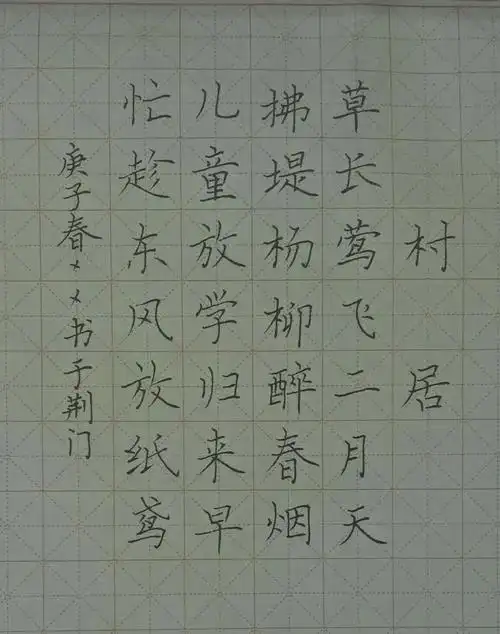 村居
草长莺飞二月天
拂堤杨柳醉春烟
儿童放学归来早
忙趁东风放纸鸢
庚子春××书于荆门